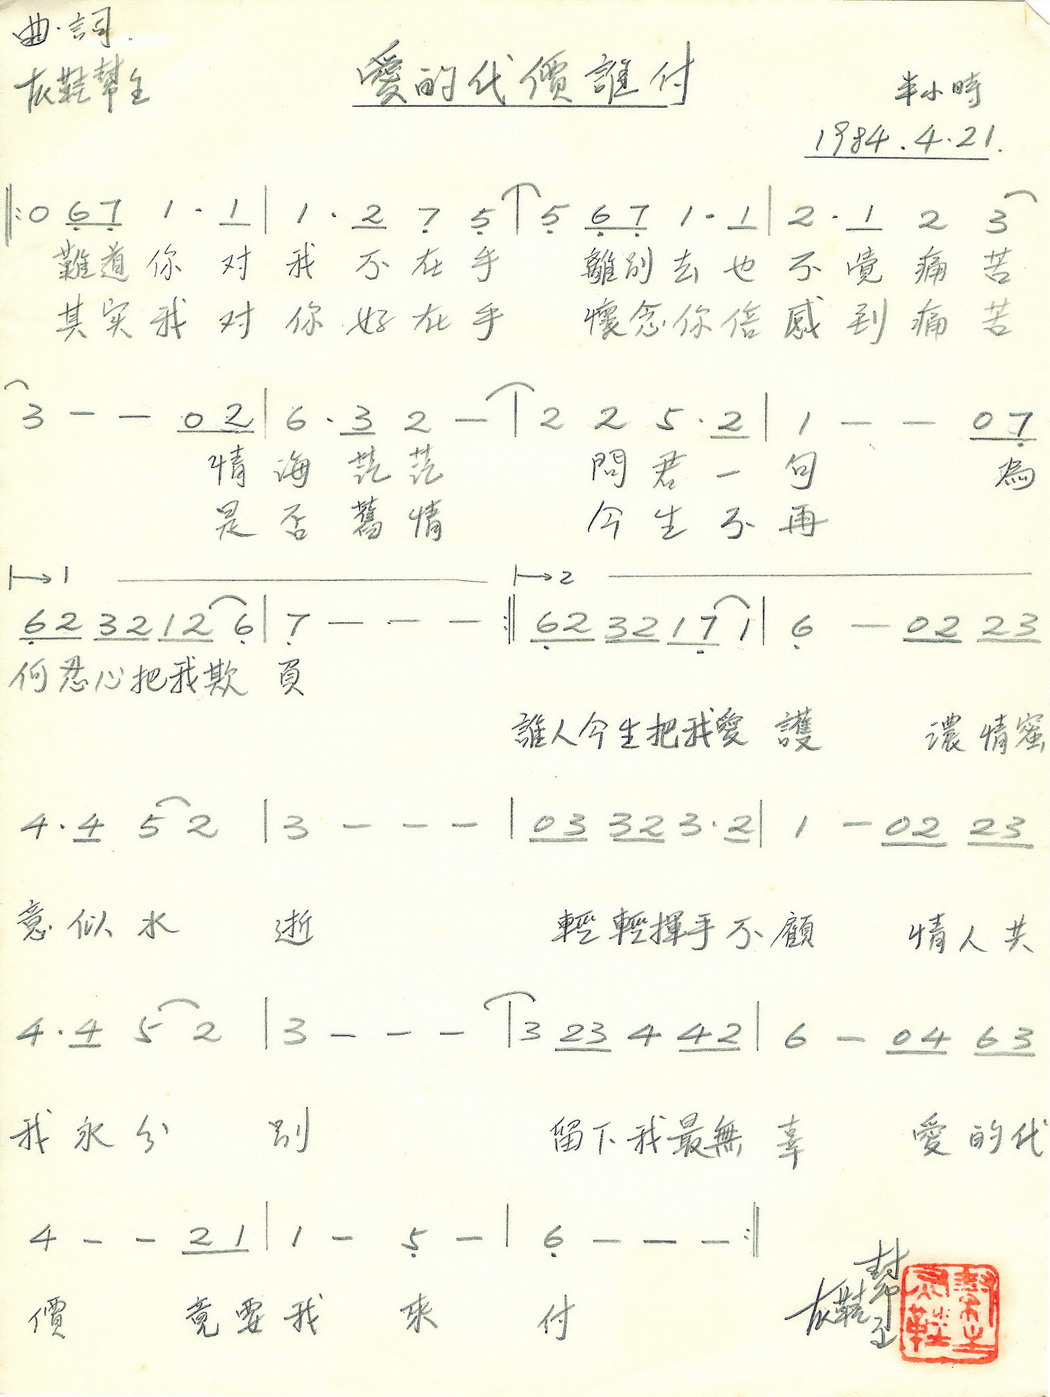 曲·詞.
灰鞋幫主
愛的代價誰付
半小時
1984.4.21.
‖: 0 6 7 1 · 1 | 1 · 2 7 5 | 5 6 7 1 · 1 | 2 · 1 2 3
難道你对我不在乎 離别去也不覺痛苦
其实我对你好在乎 懷念你倍感到痛苦
3 — — 0 2 | 6 · 3 2 — | 2 2 5 · 2 | 1 — — 0 7
情海茫茫 問君一句 為
是否舊情 今生不再
1 2
6 2 3 2 1 2 6 | 7 — — — :‖ 6 2 3 2 1 7 1 | 6 — 0 2 2 3
何忍心把我欺負
誰人今生把我愛護 濃情蜜
4 · 4 5 2 | 3 — — — | 0 3 3 2 3 · 2 | 1 — 0 2 2 3
意似水逝 輕輕揮手不顧 情人共
4 · 4 5 2 | 3 — — — | 3 2 3 4 4 2 | 6 — 0 4 6 3
我永分别 留下我最無辜 愛的代
4 — — 2 1 | 1 — 5 — | 6 — — — :‖
價 竟要我來付
灰鞋幫主